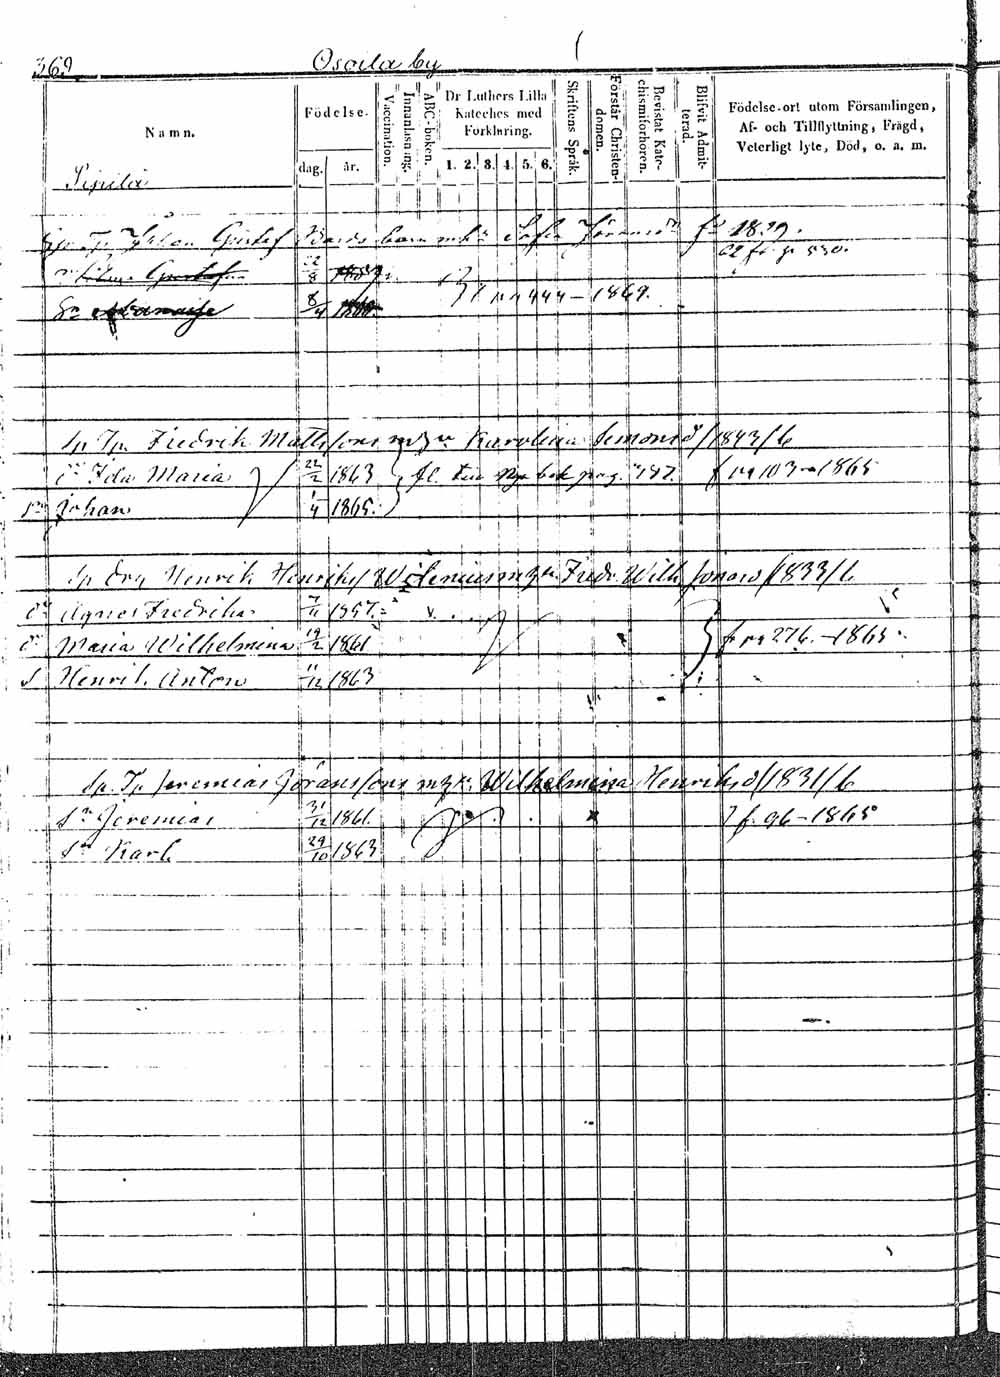 369 Oscila by
Namn.
Födelse.
dag. år.
Vaccination.
Innanläsning.
ABC-boken.
Dr Luthers Lilla Kateches med Förklaring.
1. 2. 3. 4. 5. 6.
Skriftens Språk.
Förstår Christendomen.
Bevistat Katechismiförhören.
Blifvit Admitterad.
Födelse-ort utom Församlingen,
Af- och Tillflyttning, Frägd,
Veterligt lyte, Död, o. a. m.
Sipilä
Johan Gustaf barn Sofia 1829.
22/8
8/4 444 – 1869.
Sp Tp Fredrik Mattssons Karolina Simonsd /1843/6
Dr Ida Maria 22/2 1863 fl. pag. 137. 103 1865
Sn Johan 1/4 1865.
Sp Drg Henrik Henrikss Wilenius Fredr. Wilh. Jonasd /1833/6
Dr Agnes Fredrika 7/11 1857.
Dr Maria Wilhelmina 19/2 1861 276. – 1865.
S Henrik Anton 11/12 1863
Sp. Tp Jeremias Göranssons Wilhelmina Henriksd /1831/6
Sn Jeremias 31/12 1861. f. 96 – 1865
Sn Karl 29/10 1863